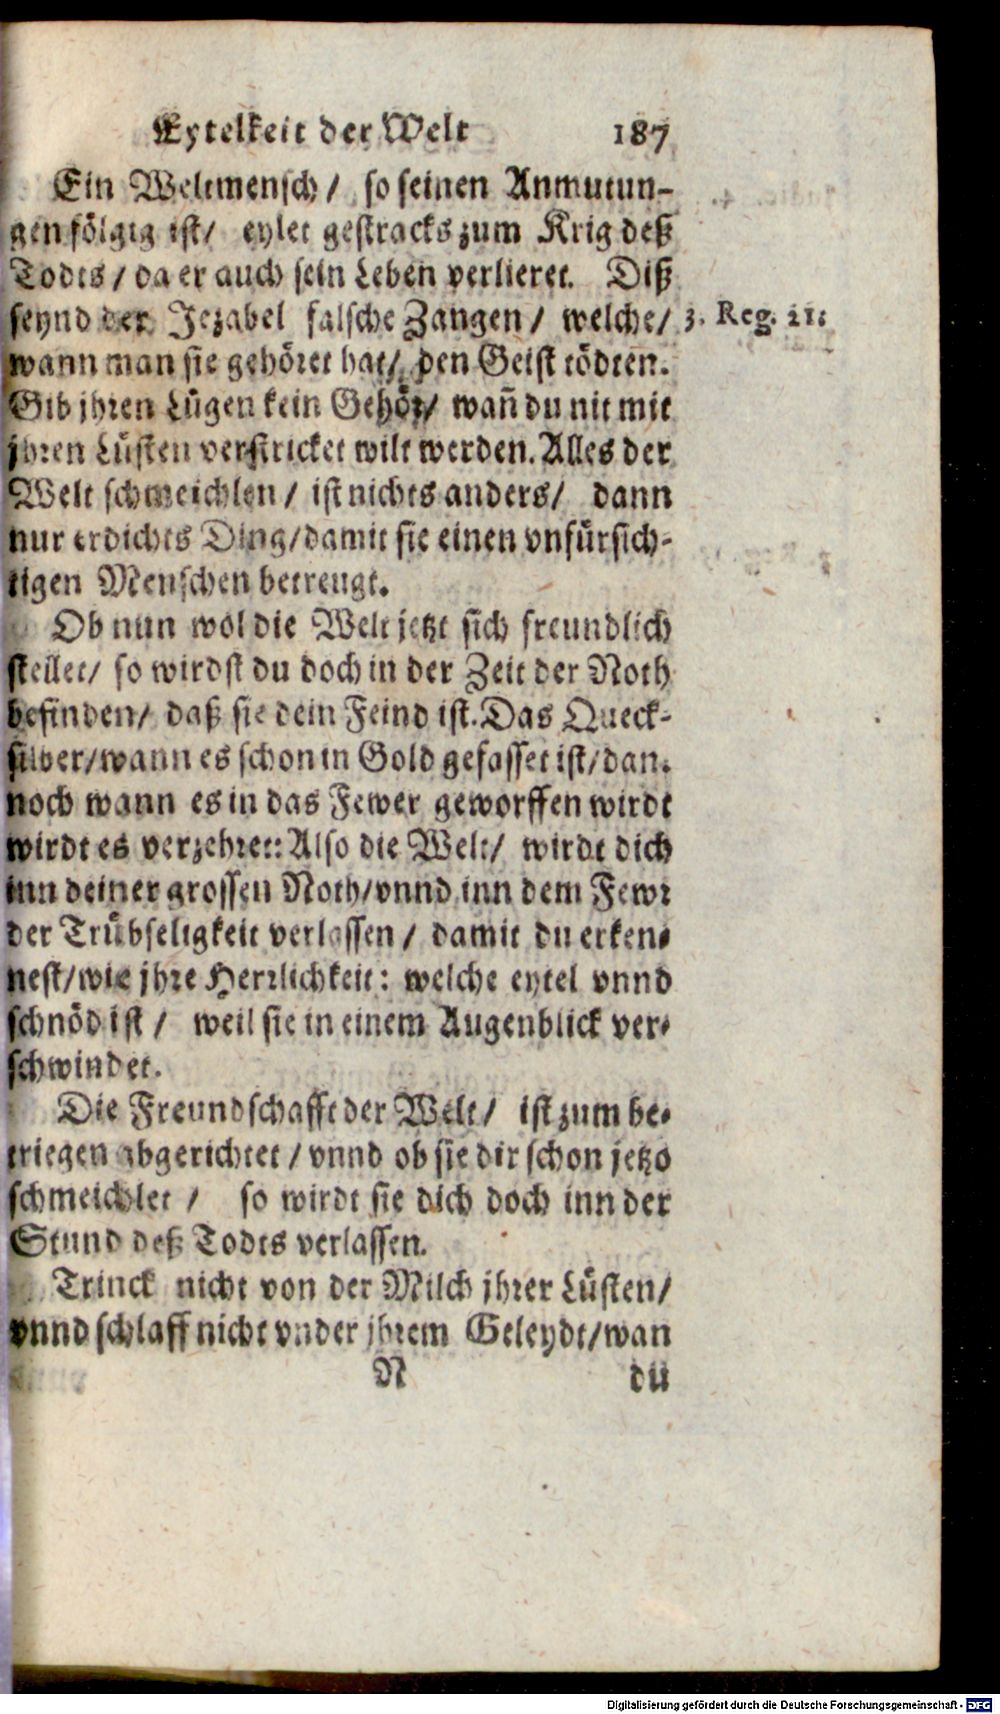 Eytelkeit der Welt 187
Ein Weltmensch / so seinen Anmutun-
gen fölgig ist / eylet gestracks zum Krig deß
Todts / da er auch sein Leben verlieret. Diß
seynd der Jezabel falsche Zangen / welche / 3. Reg. 21:
wann man sie gehöret hat / den Geist tödten.
Gib jhren Lügen kein Gehör / wañ du nit mit
jhren Lüsten verstricket wilt werden. Alles der
Welt schmeichlen / ist nichts anders / dann
nur erdichts Ding / damit sie einen vnfürsich-
tigen Menschen betreugt.
Ob nun wol die Welt jetzt sich freundlich
stellet / so wirdst du doch in der Zeit der Noth
befinden / daß sie dein Feind ist. Das Queck-
silber / wann es schon in Gold gefasset ist / dan-
noch wann es in das Fewer geworffen wirdt
wirdt es verzehret: Also die Welt / wirdt dich
inn deiner grossen Noth / vnnd inn dem Fewr
der Trübseligkeit verlassen / damit du erken-
nest / wie jhre Herrlichkeit: welche eytel vnnd
schnöd ist / weil sie in einem Augenblick ver-
schwindet.
Die Freundschafft der Welt / ist zum be-
triegen abgerichtet / vnnd ob sie dir schon jetzo
schmeichlet / so wirdt sie dich doch inn der
Stund deß Todts verlassen.
Trinck nicht von der Milch jhrer Lüsten /
vnnd schlaff nicht vnder jhrem Geleydt / wan
N du
Digitalisierung gefördert durch die Deutsche Forschungsgemeinschaft - DFG